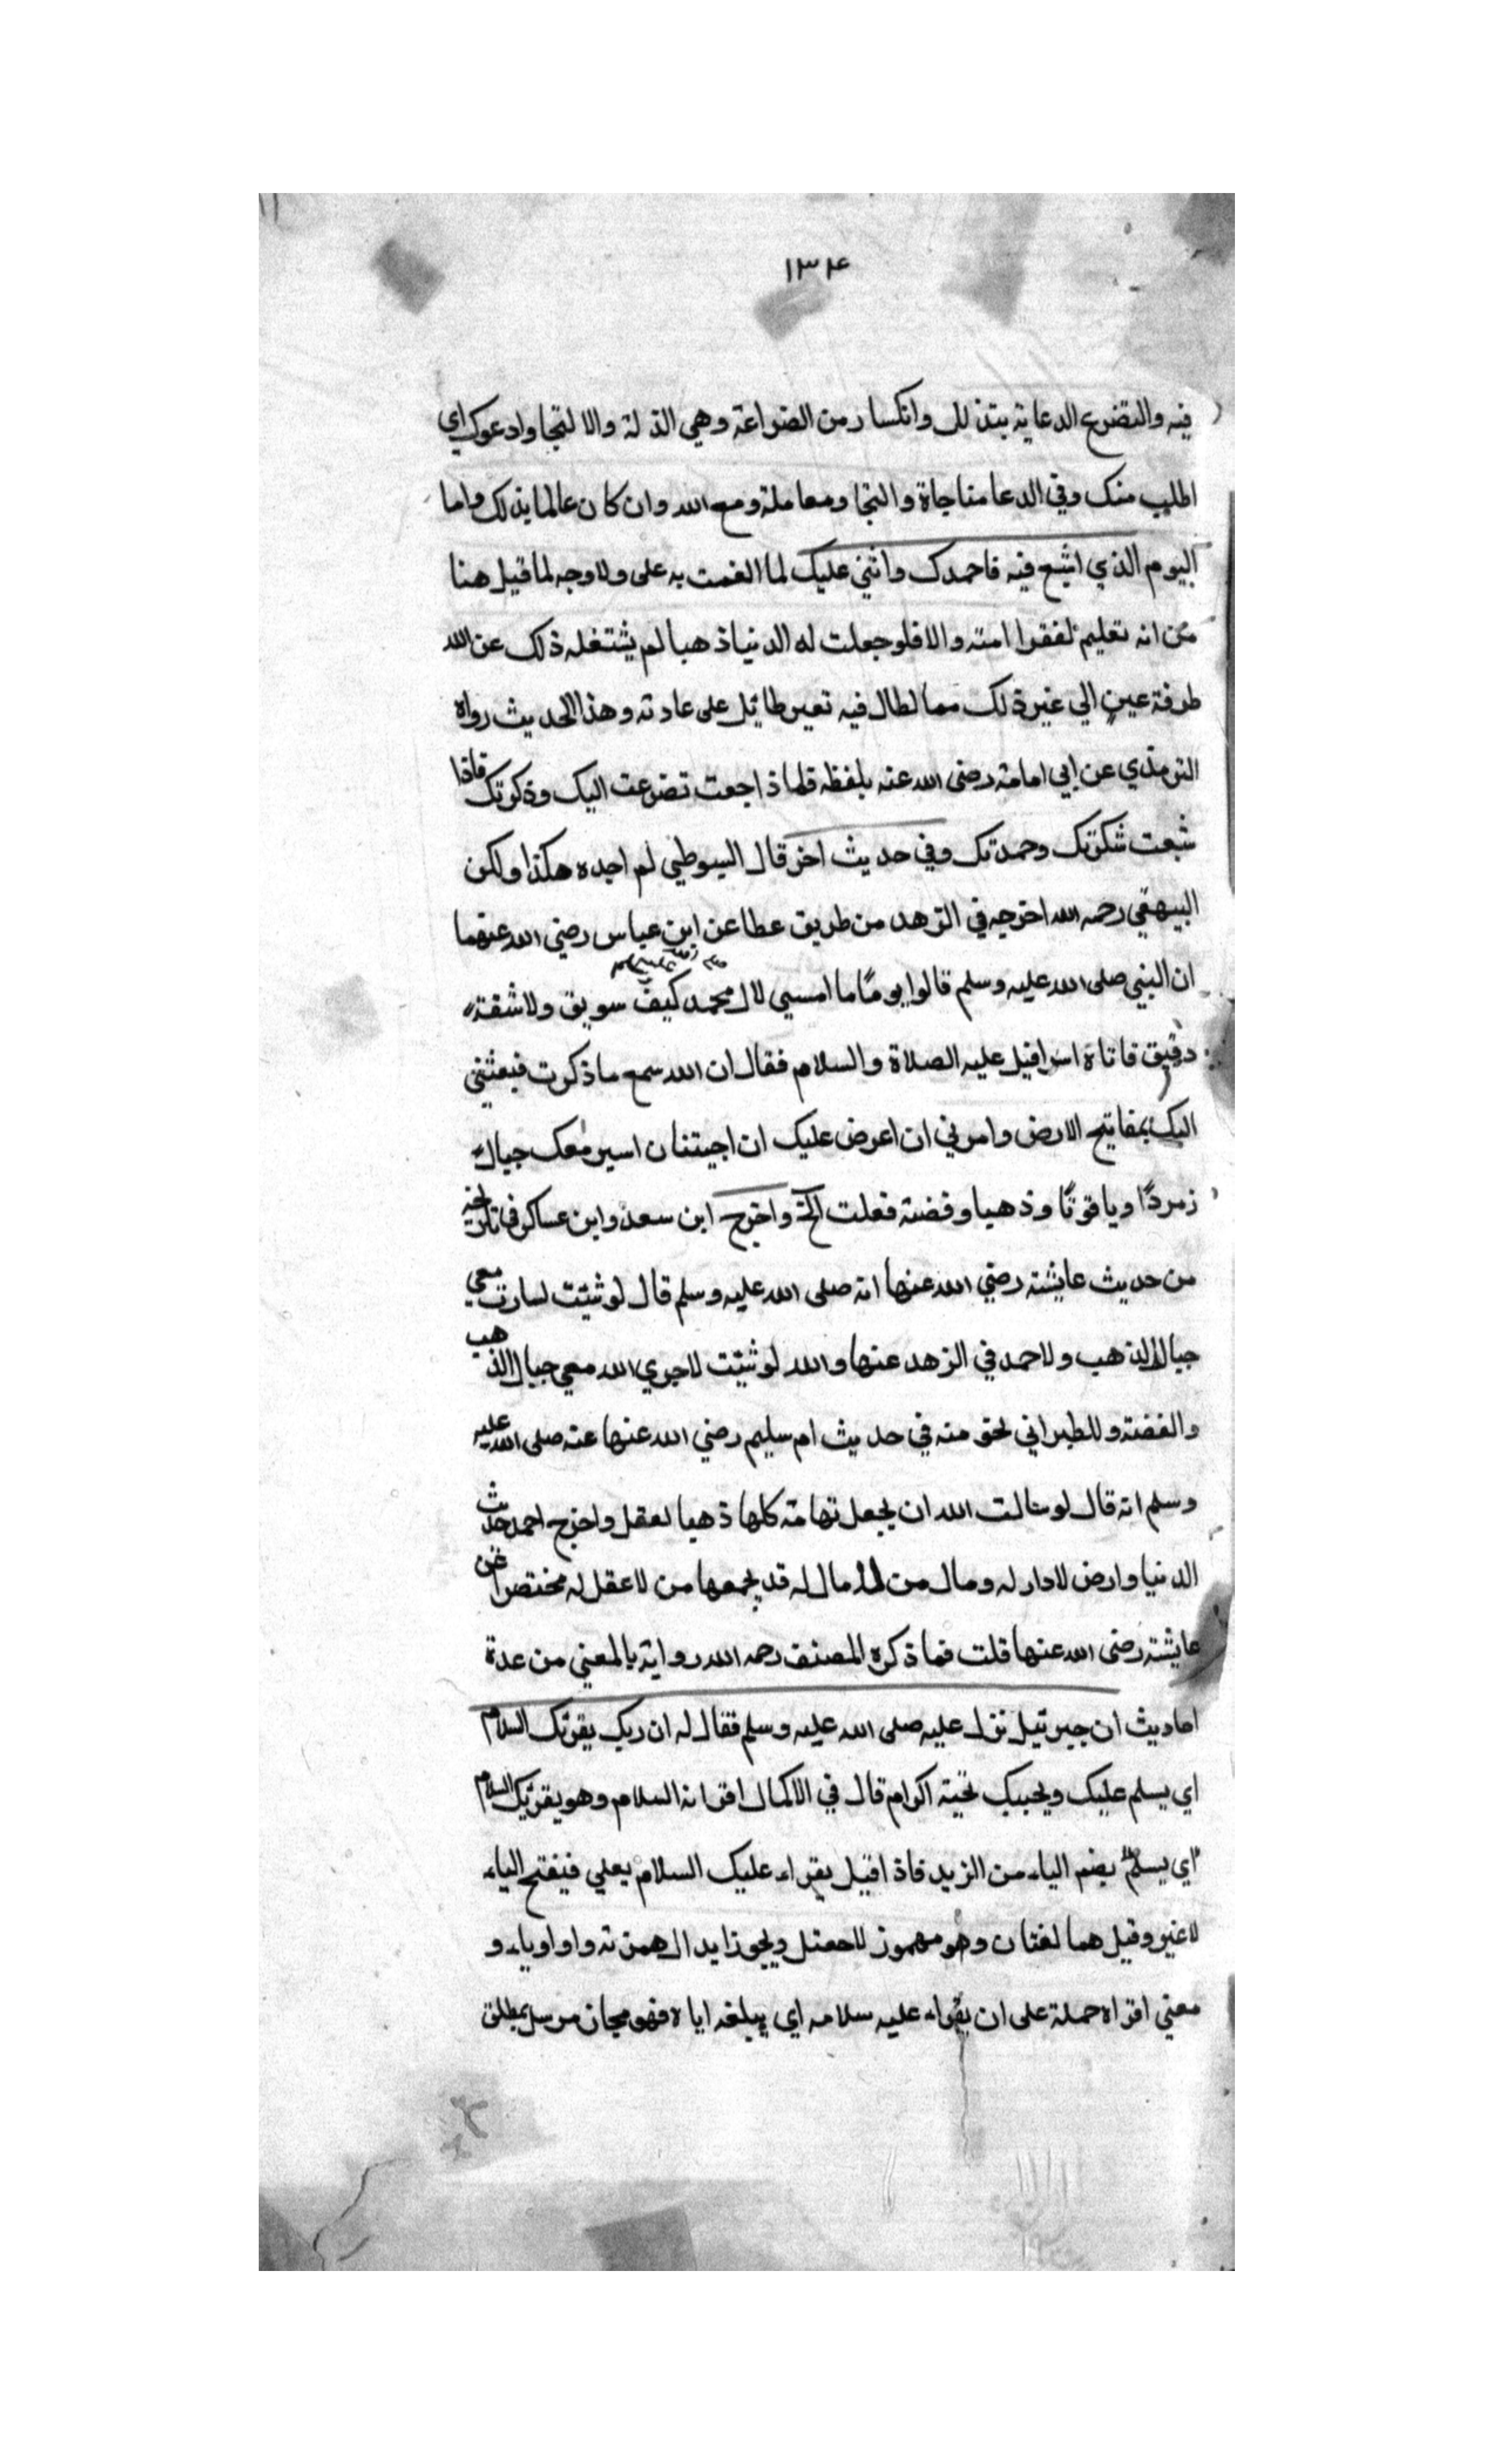 ١٣٤
فيه والتضرع الدعاية بتذلل وانكسار من الضراعة وهي الذلة والالتجا وادعوك اي
اطلب منك وفي الدعا مناجاة والتجا ومعاملة ومع الله وان كان عالما بذلك واما
اليوم الذي اشبع فيه فاحمدك واثني عليك لما انعمت به على ولا وجه لما قيل هنا
من انه تعليم لفقرا امته والا فلو جعلت له الدنيا ذهبا لم يشتغله ذلك عن الله
طرفة عين الي غير ذلك مما لطال فيه تعير طايل على عادته وهذا الحديث رواه
الترمذي عن ابي امامة رضي الله عنه بلفظه فلما ذا جعت تضرعت اليك وذكرتك فاذا
شبعت شكرتك وحمدتك وفي حديث اخر قال السيوطي لم اجده هكذا ولكن
البيهقي رحمه الله اخرجه في الزهد من طريق عطا عن ابن عباس رضي الله عنهما
ان النبي صلى الله عليه وسلم قالوا يومًا ما امسي لال محمد كيف سويق ولا شفة
دقيق فاتاه اسرافيل عليه الصلاة والسلام فقال ان الله سمع ما ذكرت فبعثني
اليك بمفاتيح الارض وامرني ان اعرض عليك ان اجيتنان اسير معك جبال
زمردًا وياقوتًا وذهبا وفضة فعلت الخ واخرج ابن سعد وابن عساكر في تاريخه
من حديث عايشة رضي الله عنها انه صلى الله عليه وسلم قال لو شئت لسارت معي
جبال الذهب ولاحمد في الزهد عنها والله لو شئت لاجري الله معي جبال الذهب
والفضة وللطبراني نحو منه في حديث ام سليم رضي الله عنها عنه صلى الله عليه
وسلم انه قال لو سالت الله ان يجعل تهامة كلها ذهبا لعقل واخرج احمد حديث
الدنيا وارض لا دار له ومال من لا مال له قد يجمعها من لا عقل له مختصرا عن
عايشة رضى الله عنها قلت فما ذكره المصنف رحمه الله رواية بالمعني من عدة
احاديث ان جبرئيل نزل عليه صلى الله عليه وسلم فقال له ان ربك يقرئك السلام
اي يسلم عليك ويحييك تحية اكرام قال في الاكمال اقرانه السلام وهو يقرئك السلام
اي يسلم بضم الياء من الزيد فاذا قيل يقراء عليك السلام يعني فيفتح الياء
لا غير وقيل هما لغتان وهو مهموز لا معتل ويجوز ايدال همزته واوا وياء و
معني اقراه حملة على ان يقراء عليه سلامه اي يبلغه اياه فهو مجاز مرسل بمطلق